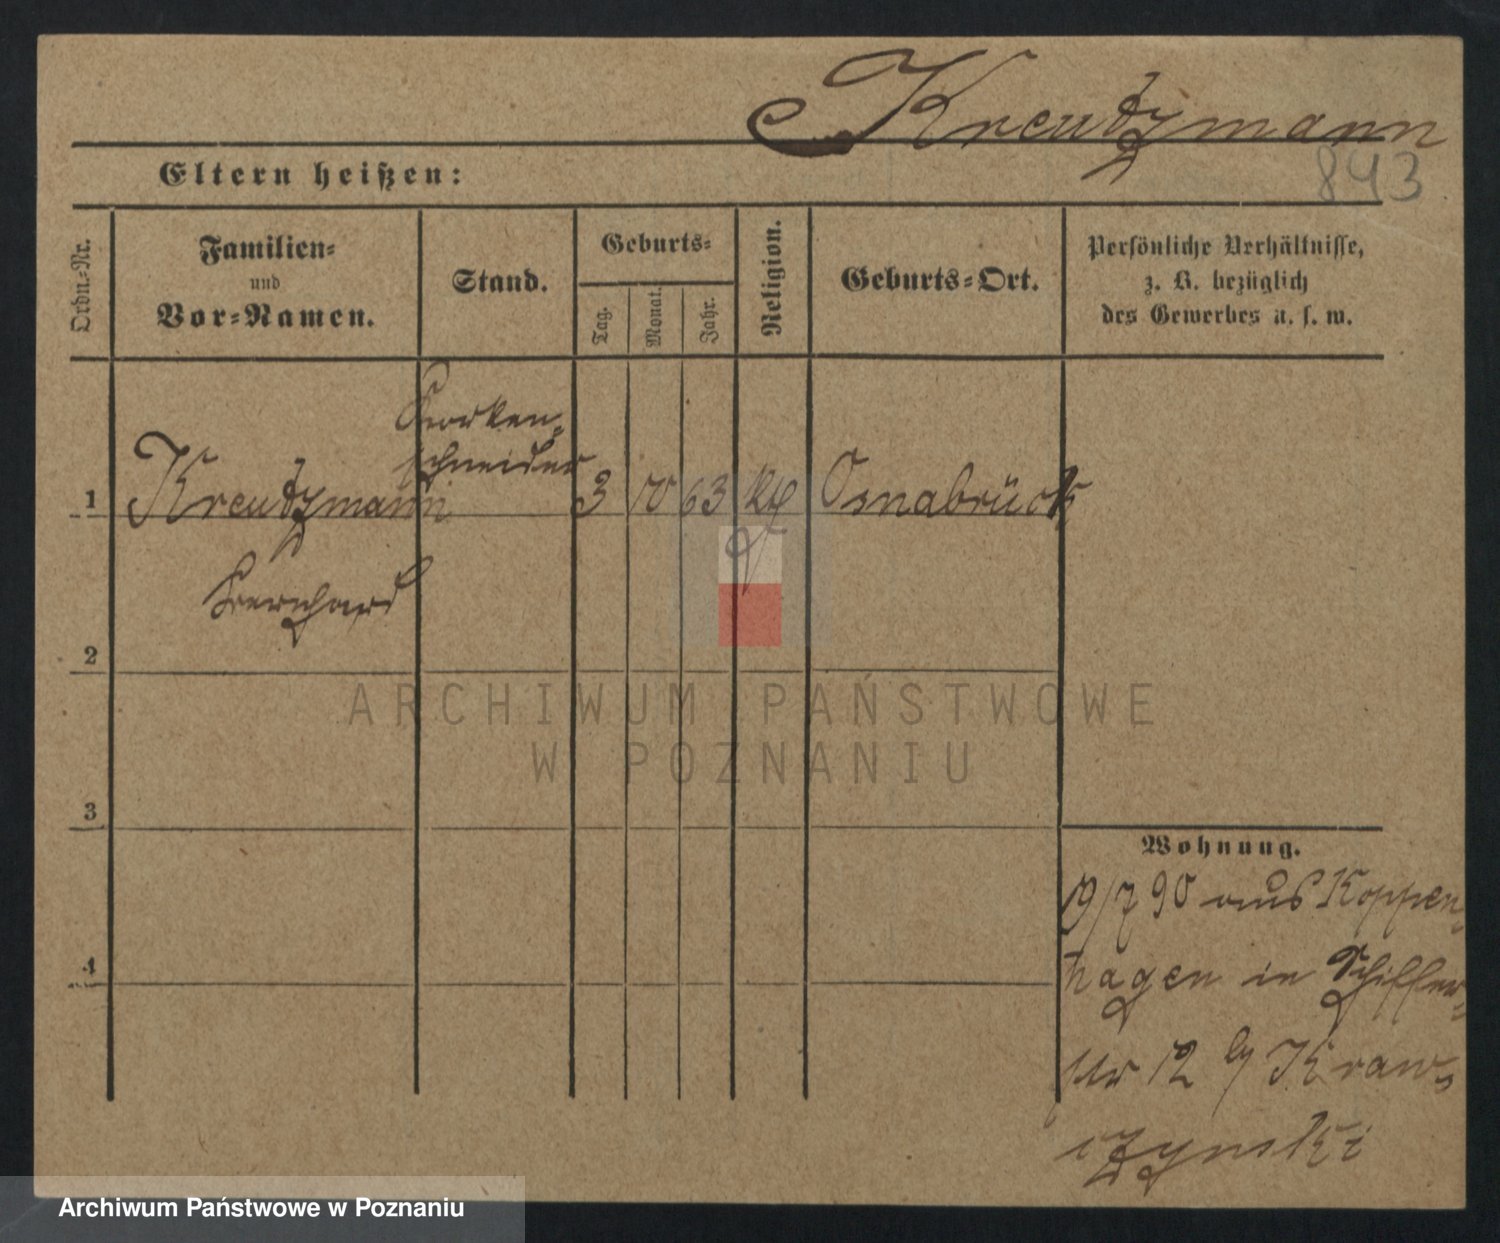 Kreutzmann
843
Eltern heißen:
Ordn.-Nr.
Familien-
und
Vor-Namen.
Stand.
Geburts-
Tag.
Monat.
Jahr.
Religion.
Geburts-Ort.
Persönliche Verhältnisse,
z. B. bezüglich
des Gewerbes u. s. w.
1
Kreutzmann
Bernhard
Korken-
schneider
3
10
63
Kth
Osnabrück
2
3
4
Wohnung.
19/7 90 aus Koppen-
hagen in Schiffer-
str 12 b/ Kraw-
czynski
ARCHIWUM PAŃSTWOWE
W POZNANIU
Archiwum Państwowe w Poznaniu